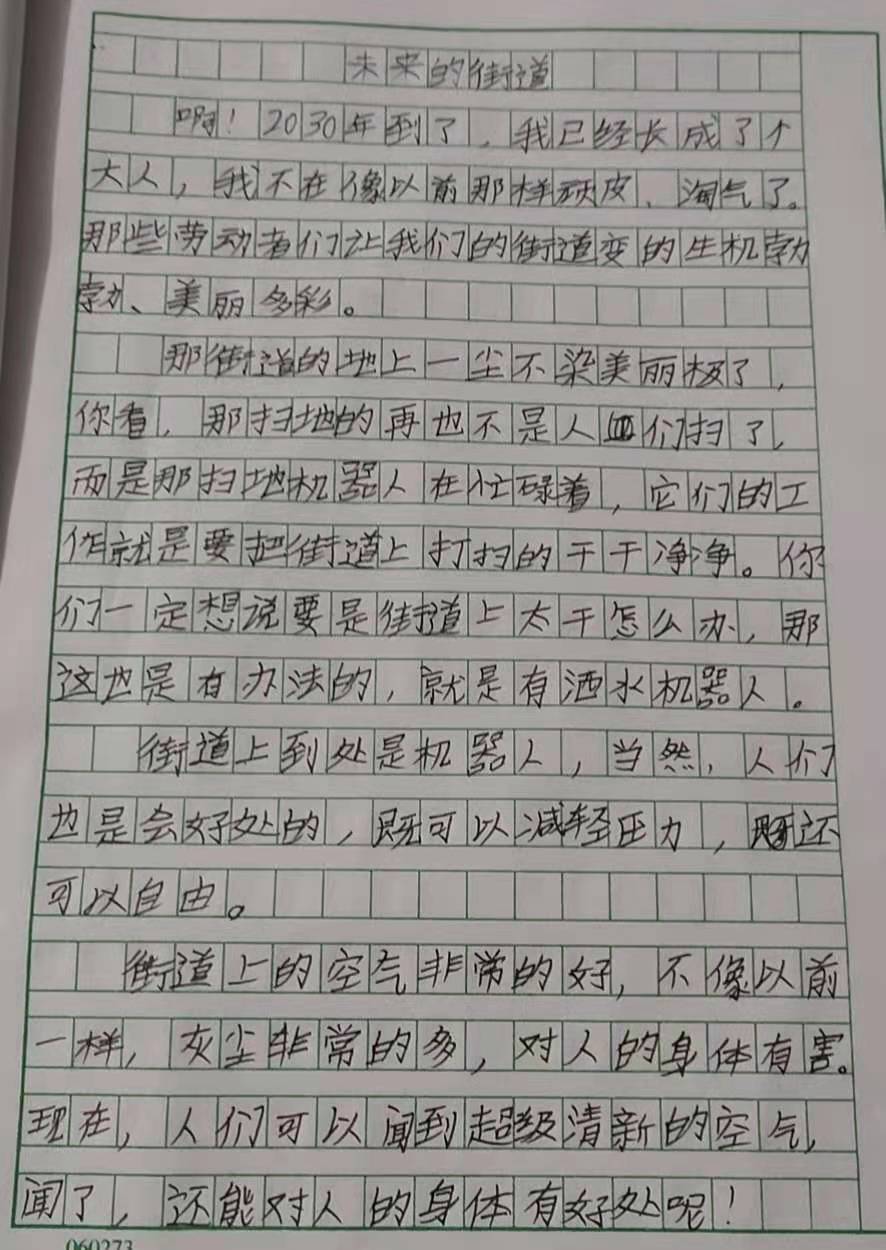 未来的街道
啊！2030年到了，我已经长成了个
大人，我不在像以前那样顽皮、淘气了。
那些劳动者们让我们的街道变的生机勃
勃、美丽多彩。
那街道的地上一尘不染美丽极了，
你看，那扫地的再也不是人们扫了，
而是那扫地机器人在忙碌着，它们的工
作就是要把街道上打扫的干干净净。你
们一定想说要是街道上太干怎么办，那
这也是有办法的，就是有洒水机器人。
街道上到处是机器人，当然，人们
也是会好处的，既可以减轻压力，还
可以自由。
街道上的空气非常的好，不像以前
一样，灰尘非常的多，对人的身体有害。
现在，人们可以闻到超级清新的空气，
闻了，还能对人的身体有好处呢！
060273